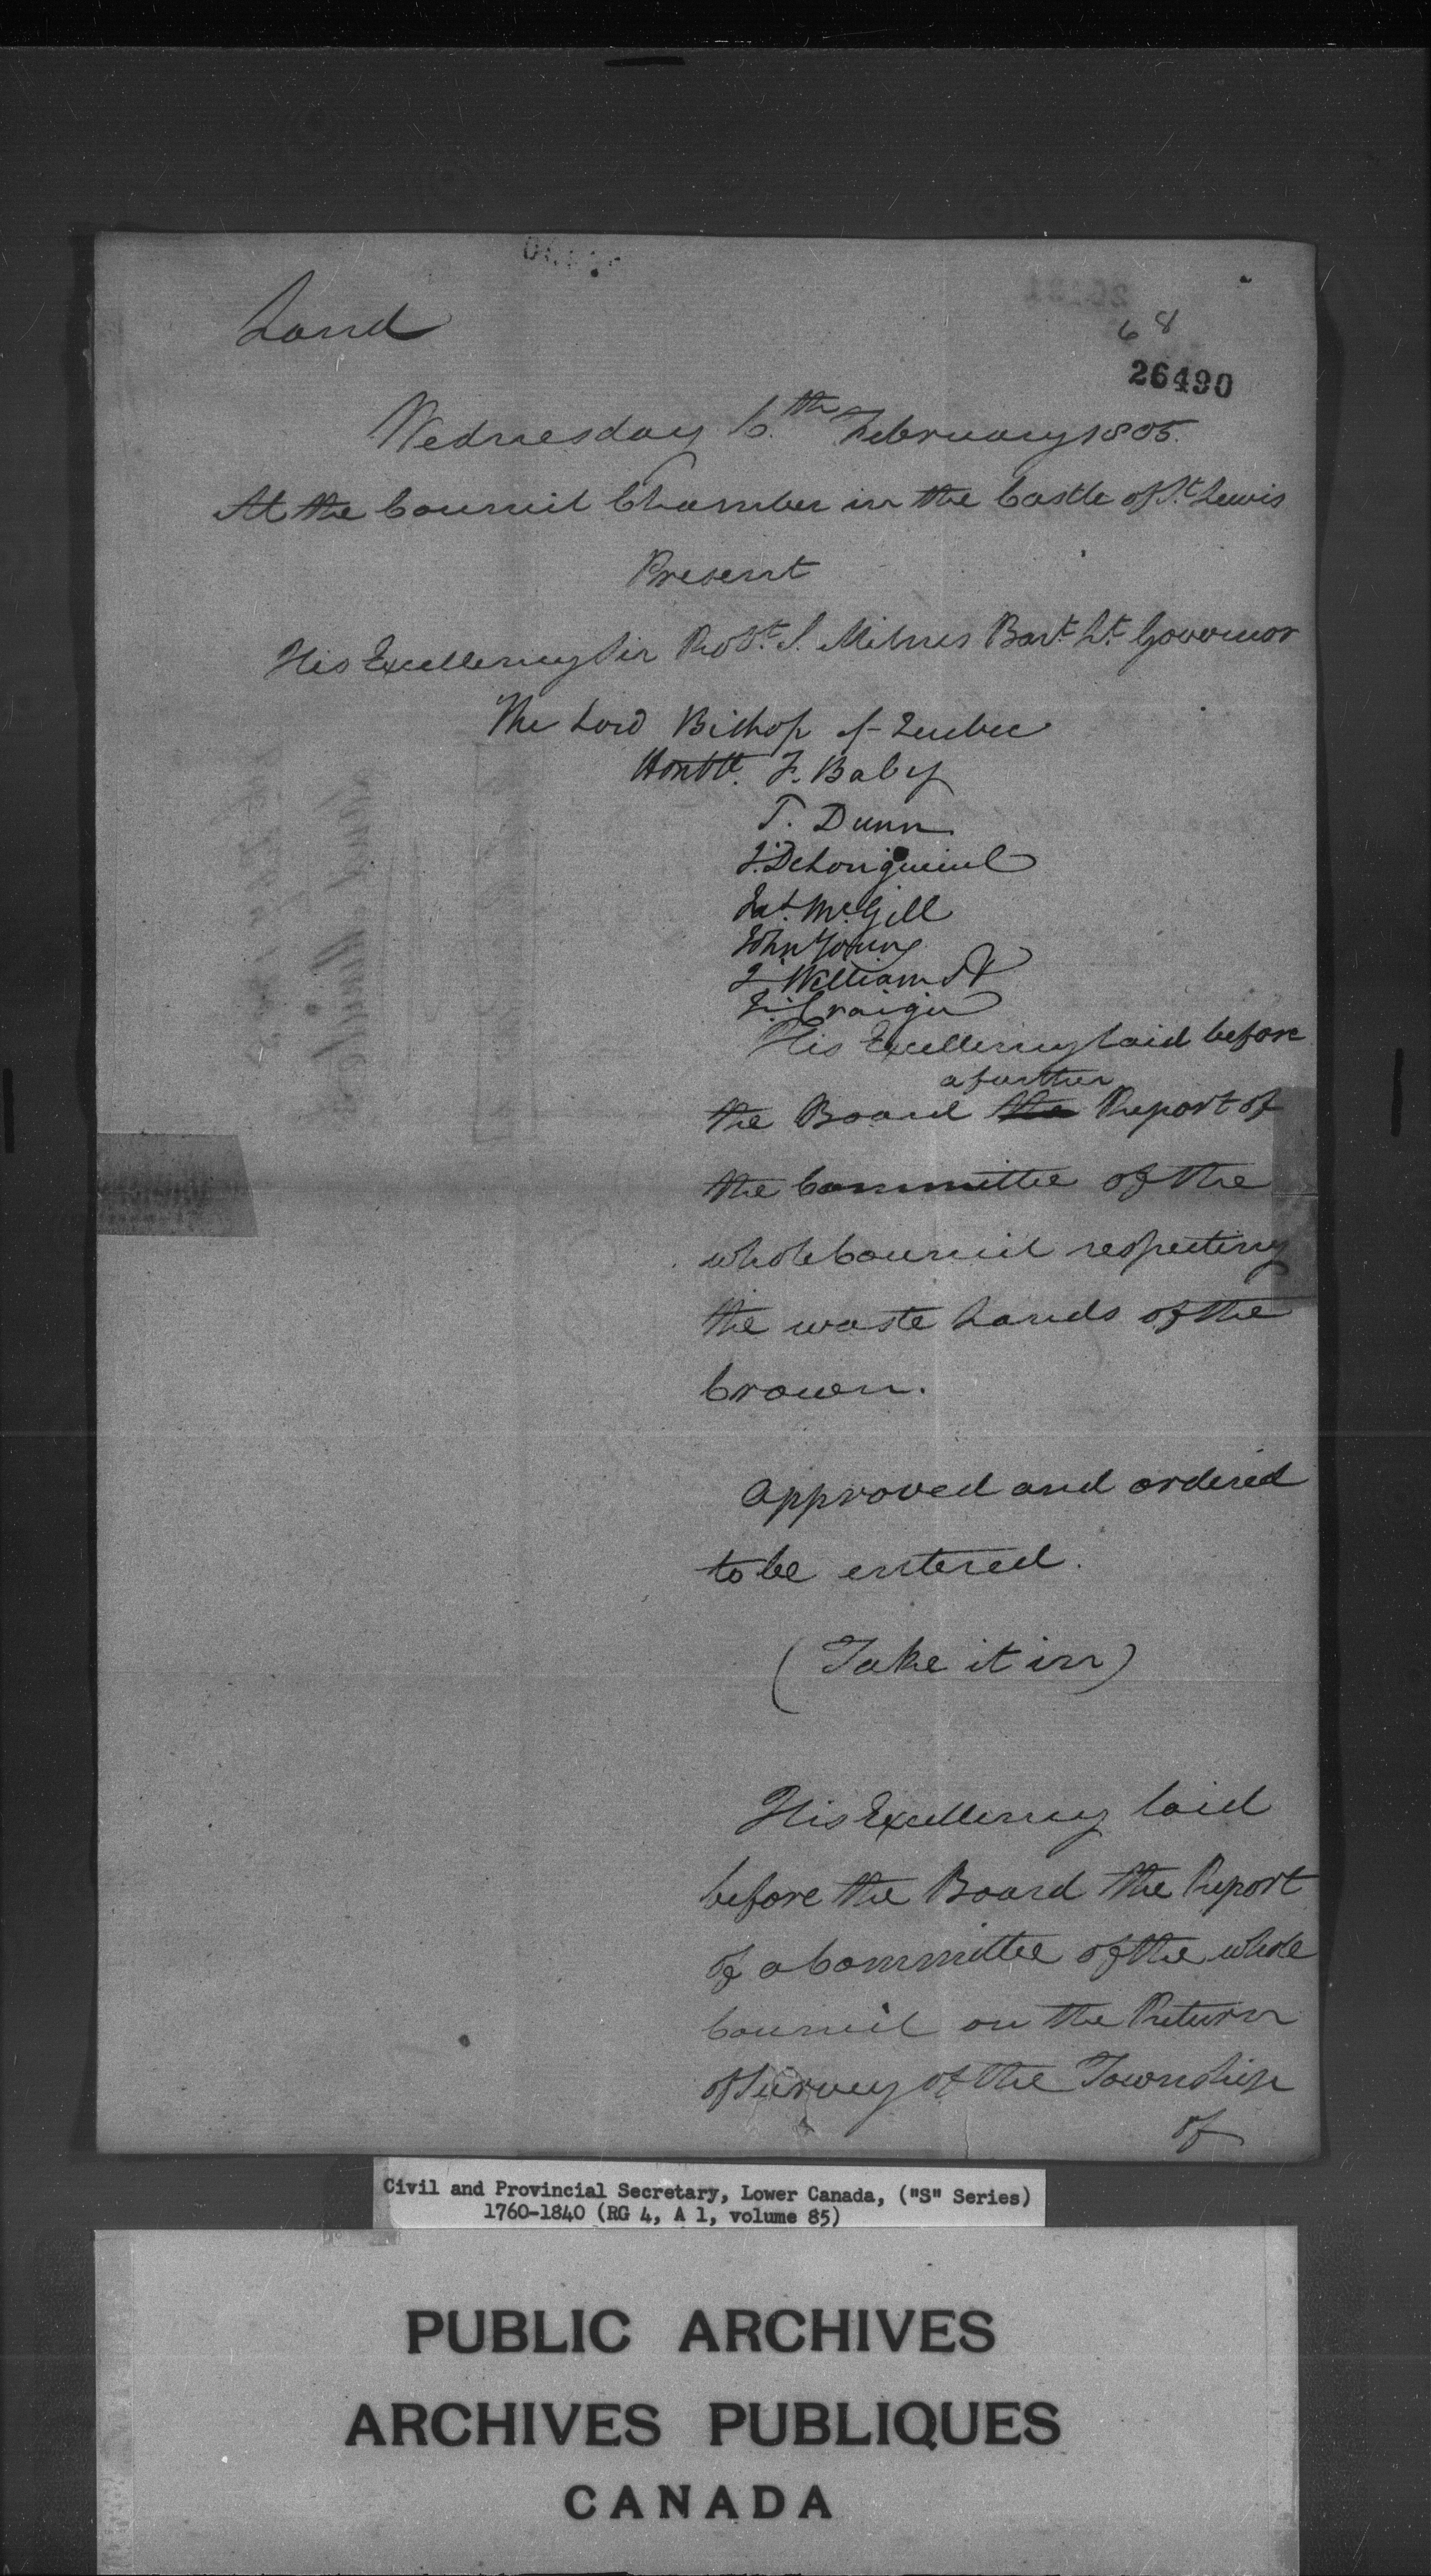 Land
68
26490
Wednesday 6.th February 1805.
At the Council Chamber in the Castle of St. Lewis
Present
His Excellency Sir Robt. S. Milnes Bart. Lt. Governor
The Lord Bishop of Quebec
Honble. F. Baby
T. Dunn
J. DeLongueuil
Jas. McGill
John Young
J. Williams
J. Craigie
His Excellency laid before
a further
the Board the Report of
the Committee of the
whole Council respecting
the waste Lands of the
Crown.
Approved and ordered
to be entered.
(Take it in)
His Excellency laid
before the Board the Report
of a Committee of the whole
Council on the Return
of Survey of the Township
of
Civil and Provincial Secretary, Lower Canada, ("S" Series)
1760-1840 (RG 4, A 1, volume 85)
PUBLIC ARCHIVES
ARCHIVES PUBLIQUES
CANADA